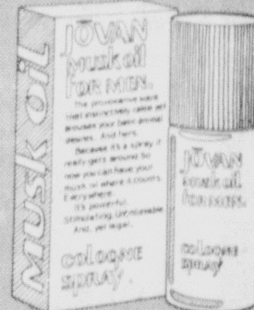 MUSK OIL
JŌVAN
Musk oil
FOR MEN.
The provocative scent
that instinctively calms yet
arouses your basic animal
desires. And hers.
Because it's a spray it
really gets around so
now you can have your
musk oil where it counts.
Everywhere.
It's powerful.
Stimulating. Unbelievable.
And, yet legal.
COLOGNE
SPRAY.
JŌVAN
Musk oil
FOR MEN.
COLOGNE
SPRAY